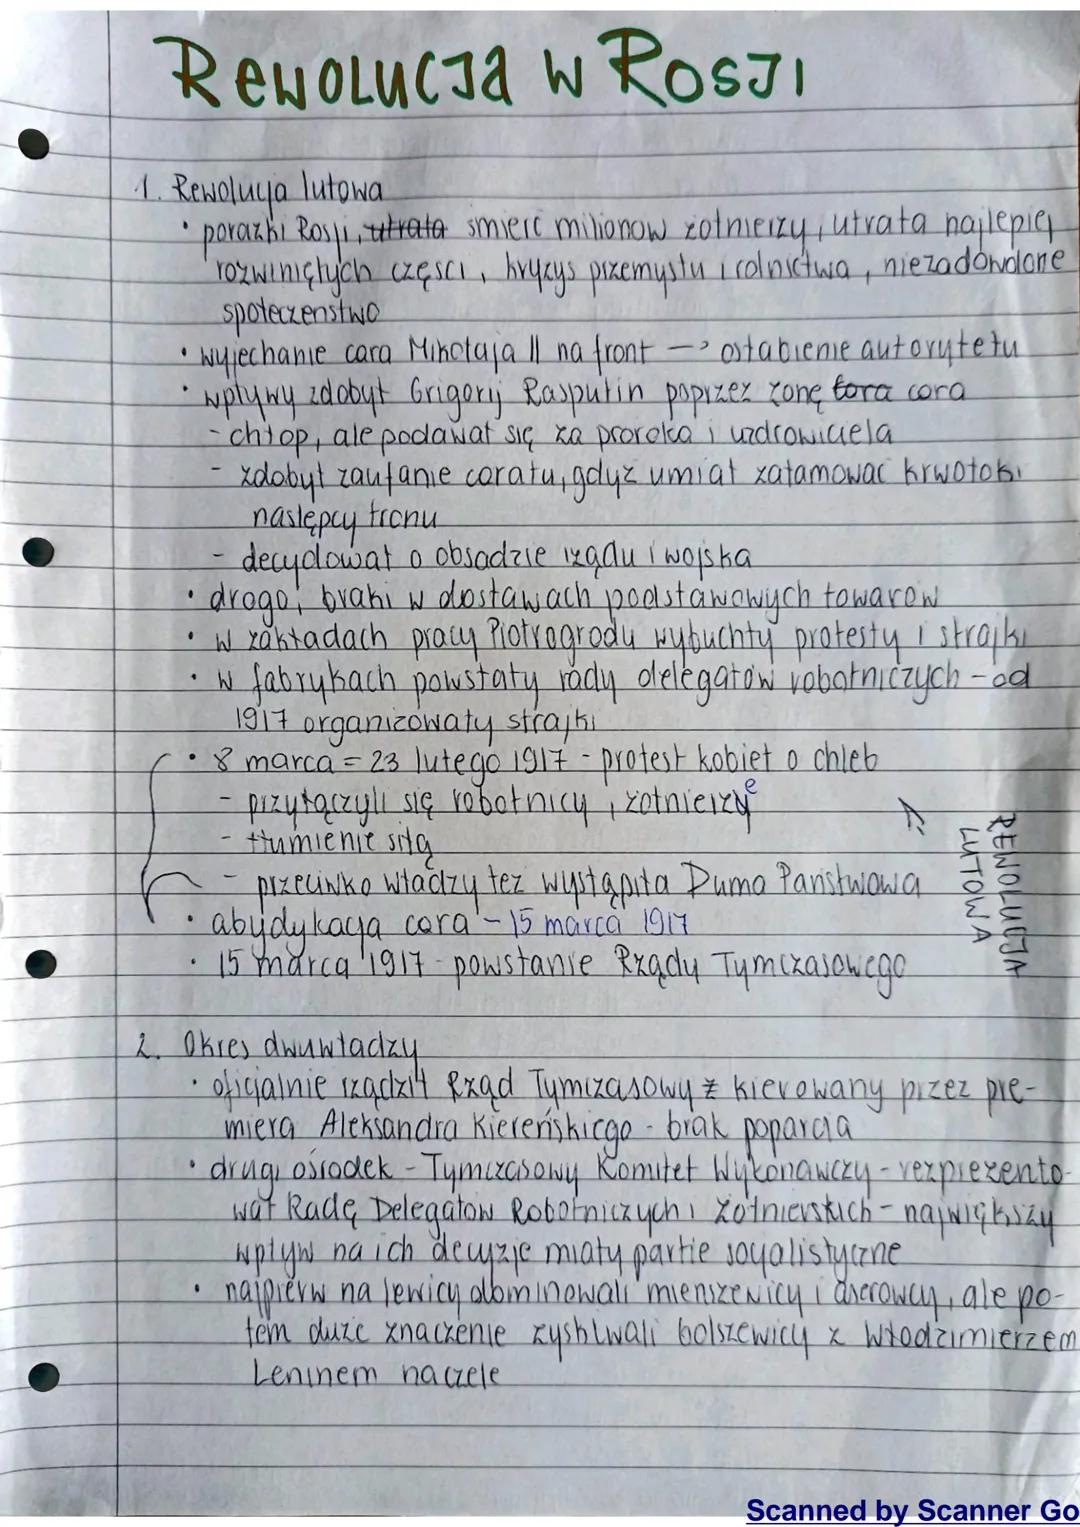 REWOLUCJA W ROSJI
1. Rewolucja lutowa
• porażki Rosji, utrata śmierć milionów żołnierzy, utrata najlepiej
rozwiniętych części, kryzys przemysłu i rolnictwa, niezadowolone
społeczeństwo
• wyjechanie cara Mikołaja II na front -> osłabienie autorytetu
• wpływy zdobył Grigorij Rasputin poprzez żonę tora cara
- chłop, ale podawał się za proroka i uzdrowiciela
- zdobył zaufanie caratu, gdyż umiał zatamować krwotoki
następcy tronu
- decydował o obsadzie rządu i wojska
• drogo, braki w dostawach podstawowych towarów
• w zakładach pracy Piotrogrodu wybuchły protesty i strajki
• w fabrykach powstały rady delegatów robotniczych - od
1917 organizowały strajki
• 8 marca = 23 lutego 1917 - protest kobiet o chleb
- przyłączyli się robotnicy, żołnierzye
- tłumienie siłą
- przeciwko władzy też wystąpiła Duma Państwowa
• abydykacja cara - 15 marca 1917
• 15 marca 1917 - powstanie Rządu Tymczasowego
REWOLUCJA
LUTOWA
2. Okres dwuwładzy
• oficjalnie rządził Rząd Tymczasowy z kierowany przez pre-
miera Aleksandra Kiereńskiego - brak poparcia
• drugi ośrodek - Tymczasowy Komitet Wykonawczy - rezprezento-
wał Radę Delegatów Robotniczych i Żołnierskich - największy
wpływ na ich decyzje miały partie socjalistyczne
• najpierw na lewicy dominowali mienszewicy i eserowcy, ale po-
tem duże znaczenie zyskiwali bolszewicy z Włodzimierzem
Leninem na czele
Scanned by Scanner Go